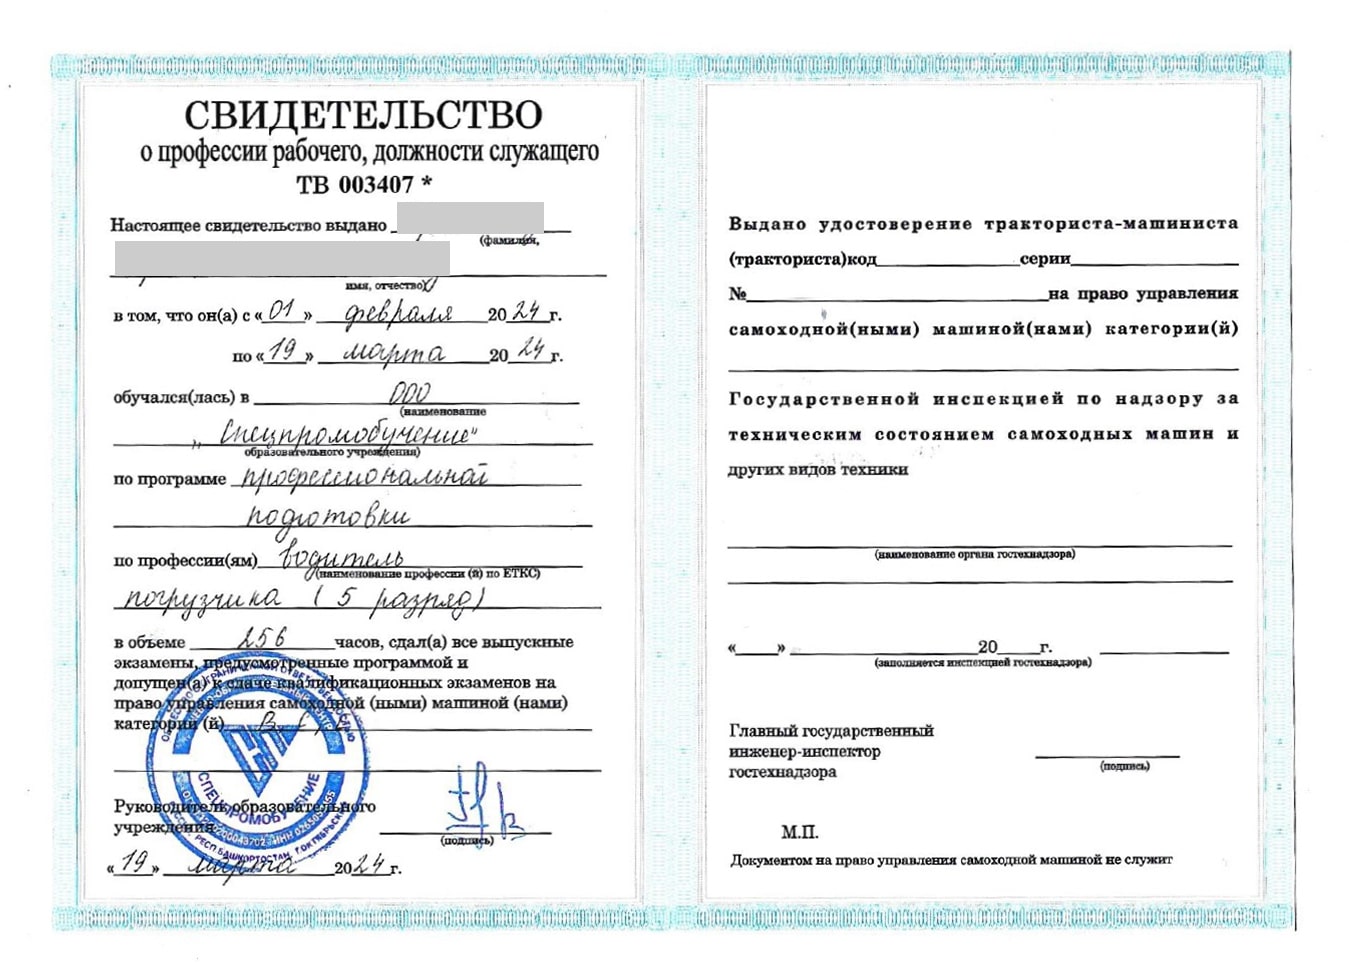 СВИДЕТЕЛЬСТВО
о профессии рабочего, должности служащего
ТВ 003407 *
Настоящее свидетельство выдано
(фамилия,
имя, отчество)
в том, что он(а) с « 01 » февраля 2024 г.
по « 19 » марта 2024 г.
обучался(лась) в ООО
(наименование
„Спецпромобучение"
образовательного учреждения)
по программе профессиональной
подготовки
по профессии(ям) водитель
(наименование профессии (й) по ЕТКС)
погрузчика (5 разряд)
в объеме 256 часов, сдал(а) все выпускные
экзамены, предусмотренные программой и
допущен(а) к сдаче квалификационных экзаменов на
право управления самоходной (ными) машиной (нами)
категории (й) В, С
СПЕЦПРОМОБУЧЕНИЕ
Руководитель образовательного
учреждения
(подпись)
« 19 » марта 2024 г.
Выдано удостоверение тракториста-машиниста
(тракториста)код серии
№ на право управления
самоходной(ными) машиной(нами) категории(й)
Государственной инспекцией по надзору за
техническим состоянием самоходных машин и
других видов техники
(наименование органа гостехнадзора)
« » 20 г.
(заполняется инспекцией гостехнадзора)
Главный государственный
инженер-инспектор
гостехнадзора
(подпись)
М.П.
Документом на право управления самоходной машиной не служит